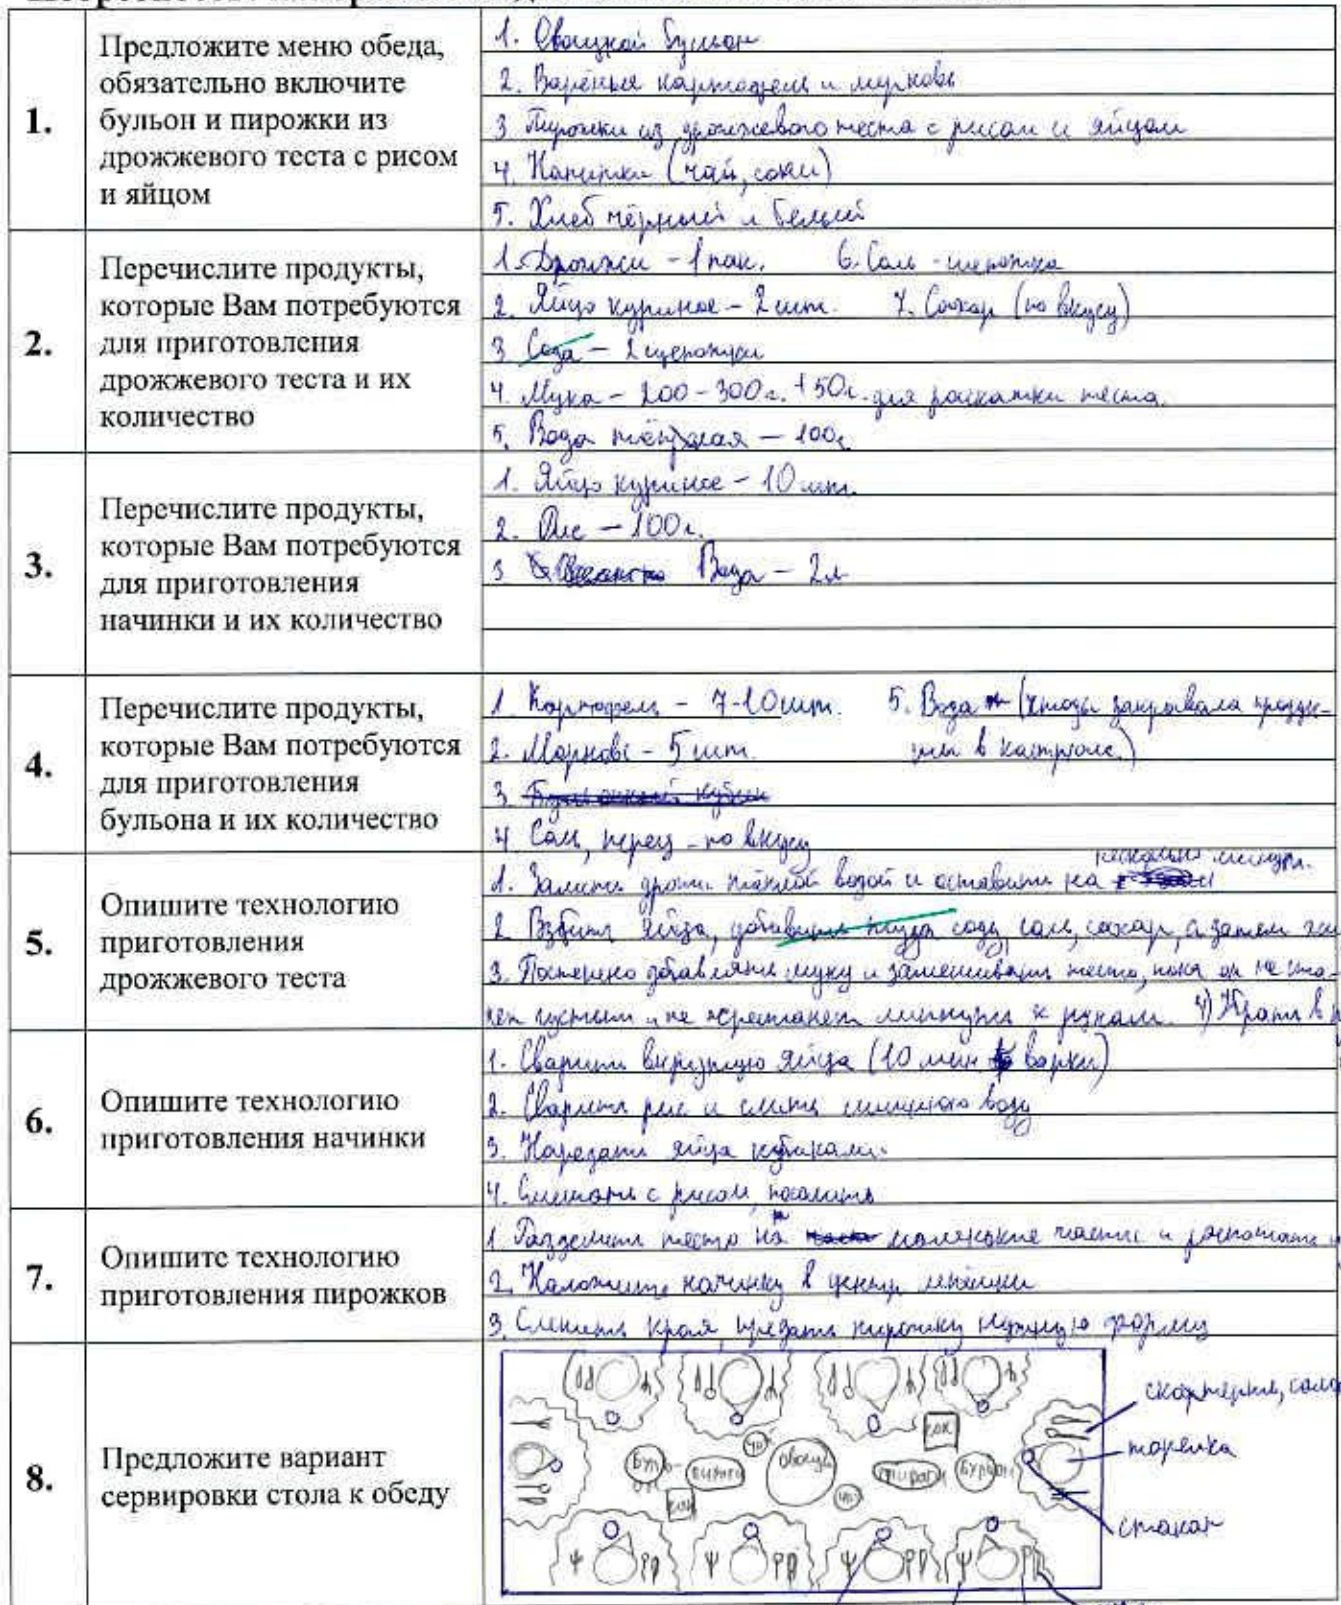 1.
Предложите меню обеда,
обязательно включите
бульон и пирожки из
дрожжевого теста с рисом
и яйцом
1. Овощной бульон
2. Варёные картофель и морковь
3 Пирожки из дрожжевого теста с рисом и яйцом
4. Напитки (чай, соки)
5. Хлеб чёрный и белый
2.
Перечислите продукты,
которые Вам потребуются
для приготовления
дрожжевого теста и их
количество
1. Дрожжи - 1 пак. 6. Соль - щепотка
2. Яйцо куриное - 2 шт. 7. Сахар (по вкусу)
3 Сода - 2 щепотки
4. Мука - 200-300г. +50г. для раскатки теста.
5. Вода тёплая - 100г
3.
Перечислите продукты,
которые Вам потребуются
для приготовления
начинки и их количество
1. Яйцо куриное - 10 шт.
2. Рис - 100г.
3 Вода - 2л
4.
Перечислите продукты,
которые Вам потребуются
для приготовления
бульона и их количество
1 Картофель - 7-10 шт. 5. Вода (чтобы закрывала продук-
2. Морковь - 5 шт. ты в кастрюле.)
3. Бульонный кубик
4 Соль, перец - по вкусу
5.
Опишите технологию
приготовления
дрожжевого теста
несколько минут.
1. Залить дрожи тёплой водой и оставить на
2 Взбить яйца, добавить туда соду, соль, сахар, а затем
3. Постепенно добавляте муку и замешивать тесто, пока он не ста-
нет густым и не перестанет липнуть к рукам. 4)
6.
Опишите технологию
приготовления начинки
1. Сварить вкрутую яйца (10 мин варки)
2. Сварить рис и слить лишнюю воду
3. Нарезать яйца кубиками.
4. Смешать с рисом, посолить
7.
Опишите технологию
приготовления пирожков
1 Разделить тесто на маленькие части и
2. Наложить начинку в центр лепёшки
3. Слепить края, придать пирожку нужную форму
8.
Предложите вариант
сервировки стола к обеду
скартерть,
тарелка
стакан
сок
чай
овощи
бульон
чай
сок